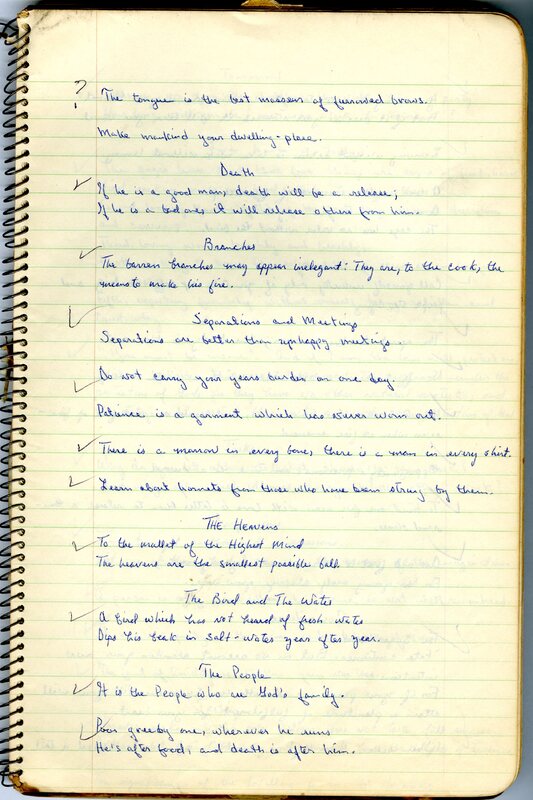 ? The tongue is the best masseur of furrowed brows.
Make mankind your dwelling-place.
Death
If he is a good man, death will be a release;
If he is a bad one, it will release others from him.
Branches
The barren branches may appear inelegant: They are, to the cook, the
means to make his fire.
Separations and Meetings
Separations are better than unhappy meetings.
Do not carry your years burden on one day.
Patience is a garment which has never worn out.
There is a marrow in every bone, there is a man in every shirt.
Learn about hornets from those who have been stung by them.
THE Heavens
To the mallet of the Highest Mind
The heavens are the smallest possible ball.
The Bird and The Water
A bird which has not heard of fresh water
Dips his beak in salt-water year after year.
The People
It is the People who are God's family.
Poor greedy one, wherever he runs
He's after food, and death is after him.